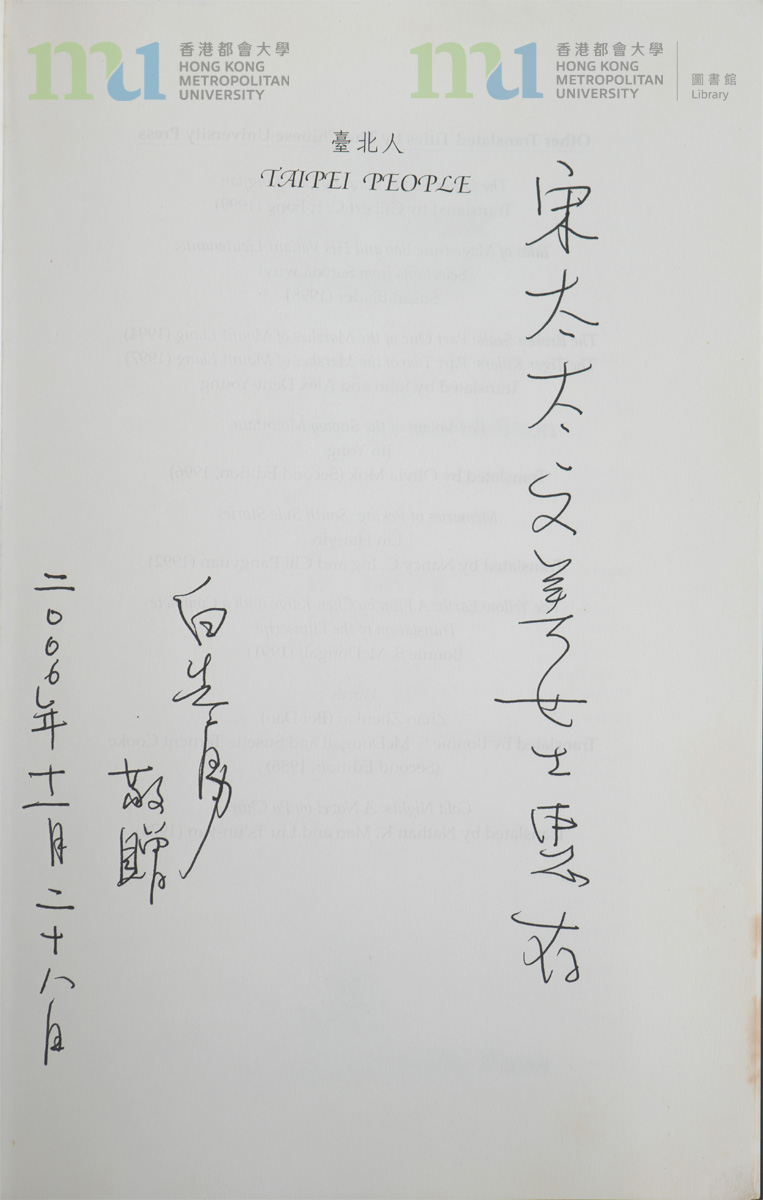 香港都會大學
HONG KONG
METROPOLITAN
UNIVERSITY
香港都會大學
HONG KONG
METROPOLITAN
UNIVERSITY
圖書館
Library
臺北人
TAIPEI PEOPLE
宋太太文美女士惠存
白先勇
敬贈
二00六年十一月二十八日